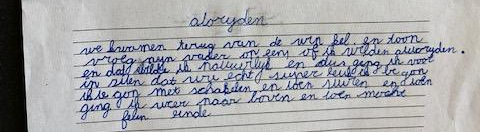 aloryden
we kwamen terug van de win kel. en toon
vroeg mijn vader op eens of ik wilden aloryden.
en dat wilde ik natuurlijk en dus ging ik voor
in zien dat wru echt super leuk ik be gon
ik be gon met schakelen en toen sturen en toen
ging ik weer naar boven en toen mocht
fein einde